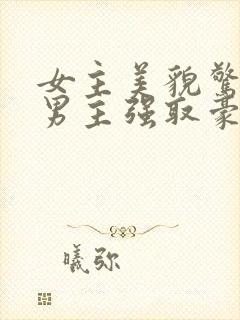 女主美貌驚
男主强取豪
曦弥